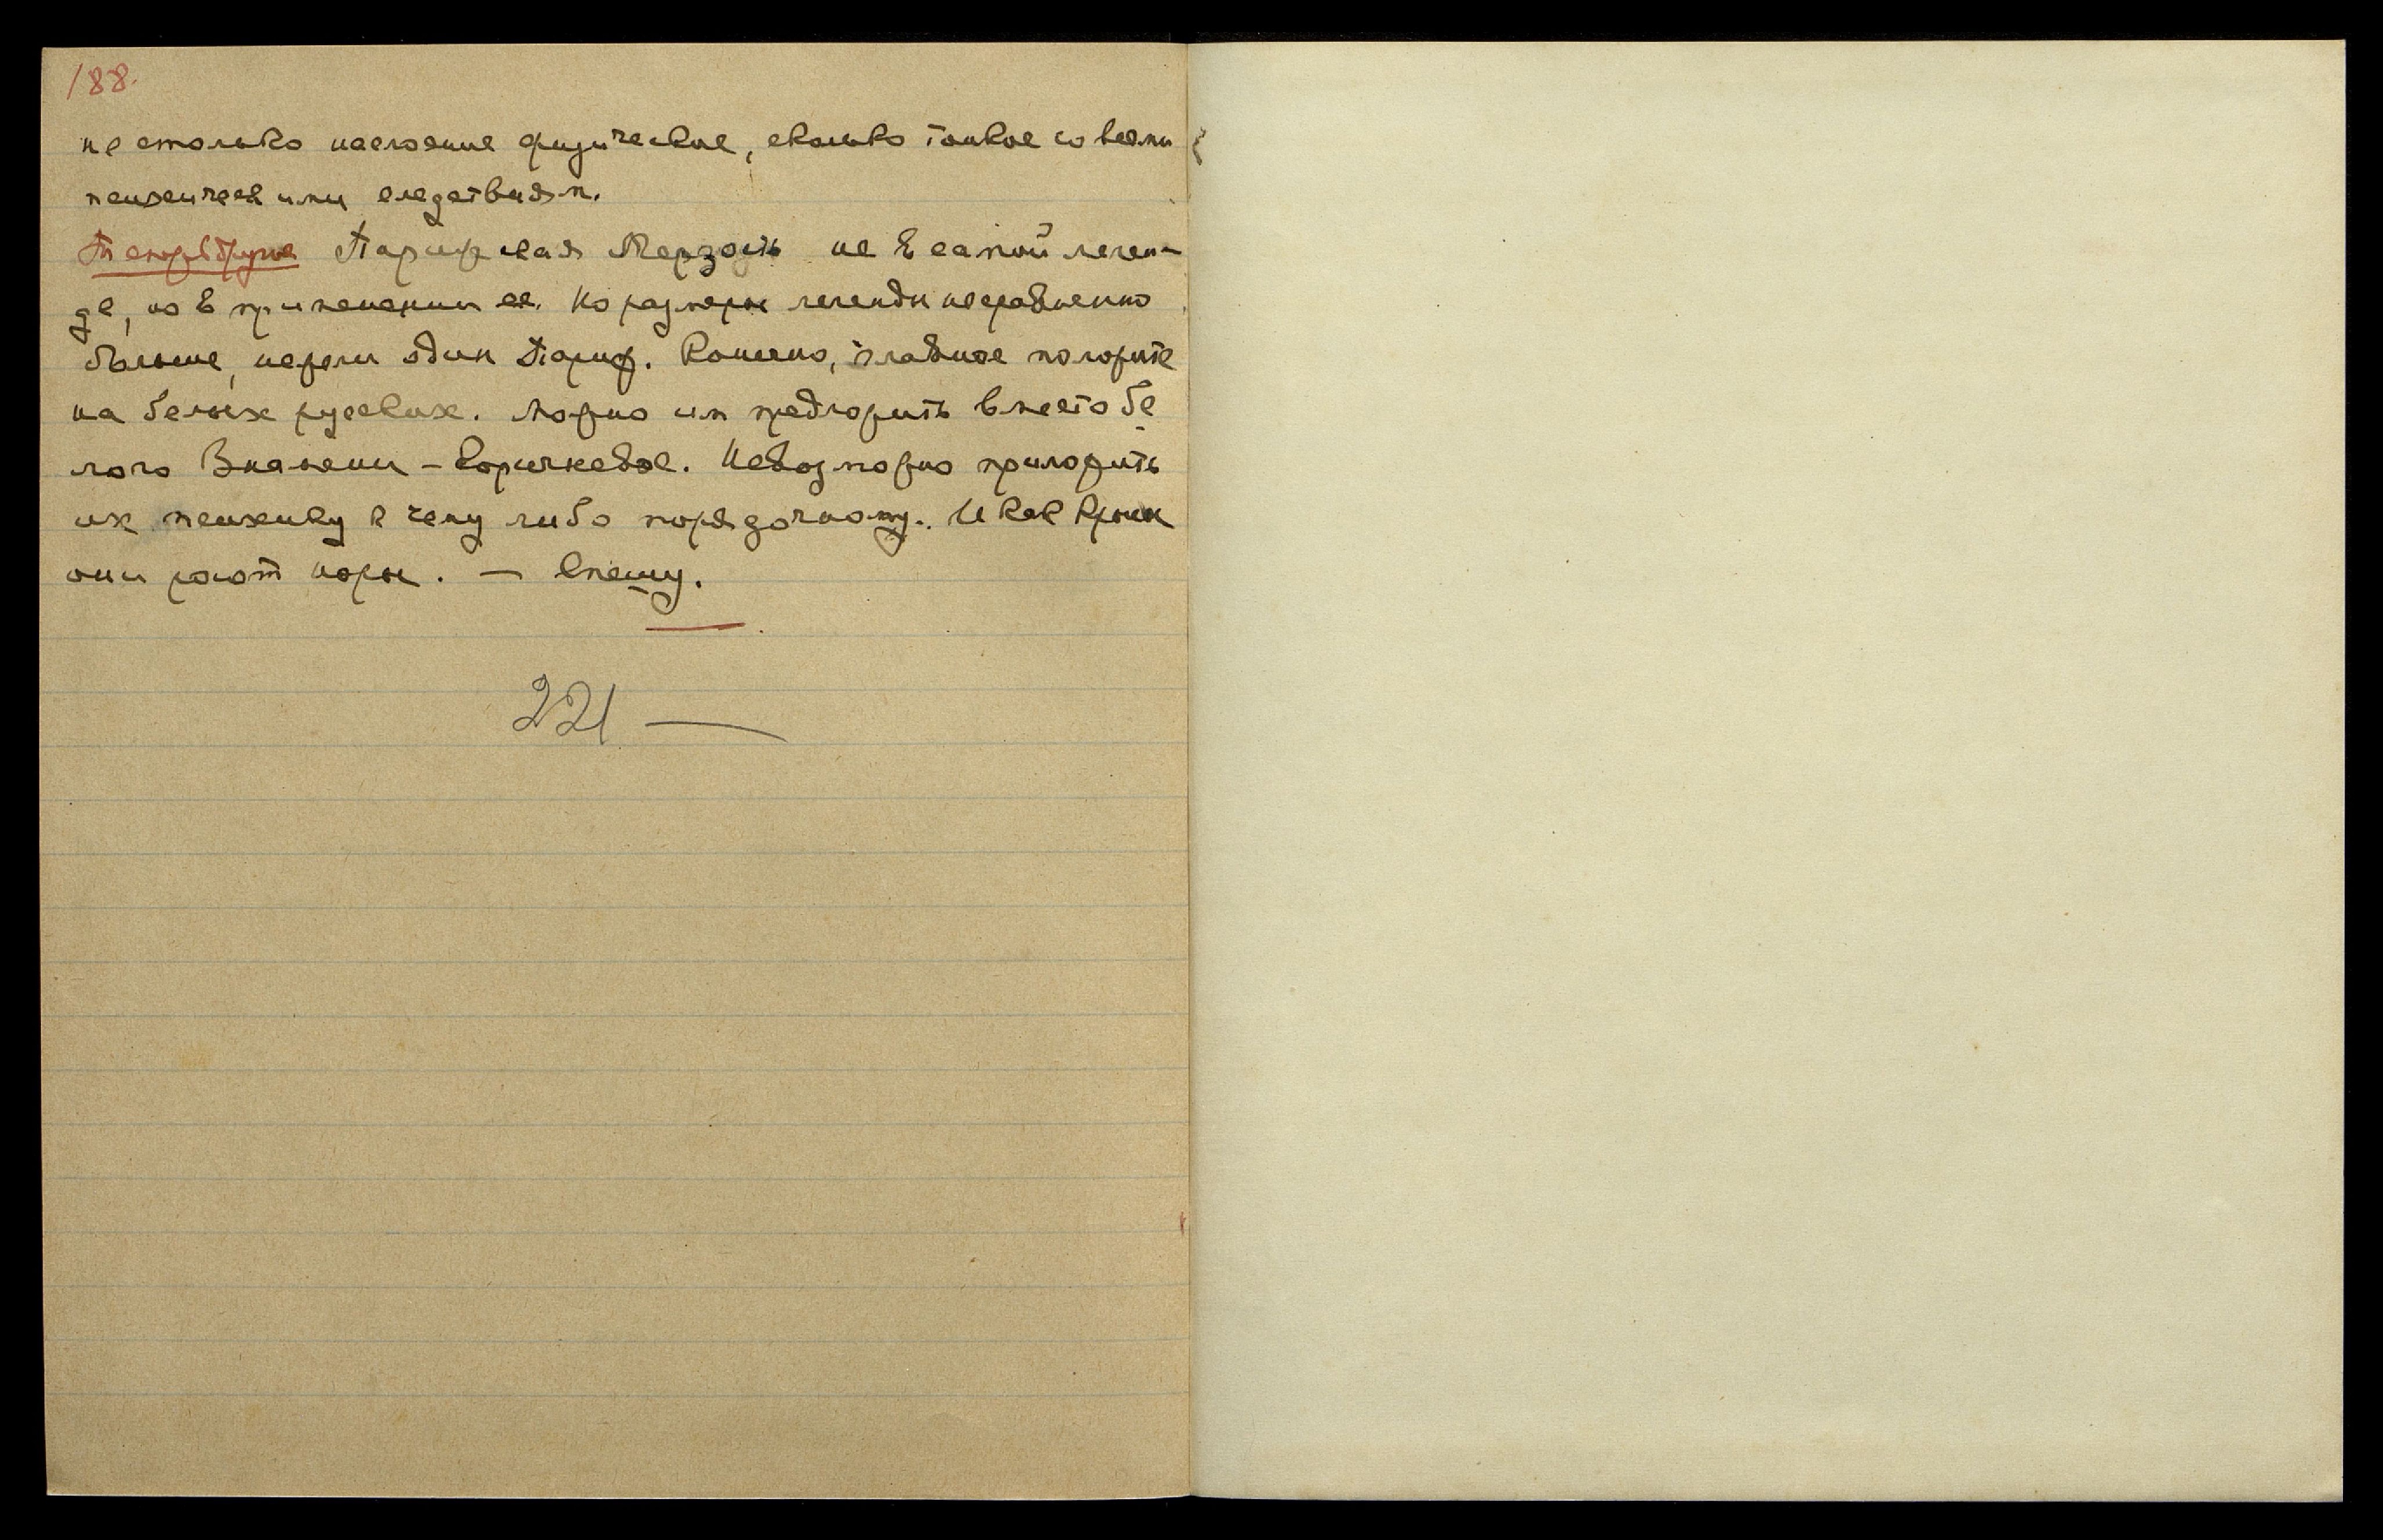 188.
не столько наслоение физическое, сколько тонкое со всеми
психическими следствиями.
Теперь другое Парижская Мерзость не в самой леген-
де, но в применении ее. Но размеры легенды несравненно
больше, нежели один Париж. Конечно, главное положите
на белых русских. Можно им предложить вместо бе
лого Знамени - коричневое. Невозможно приложить
их психику к чему либо порядочному. И как крысы
они роют норы. — Спешу.
221 —